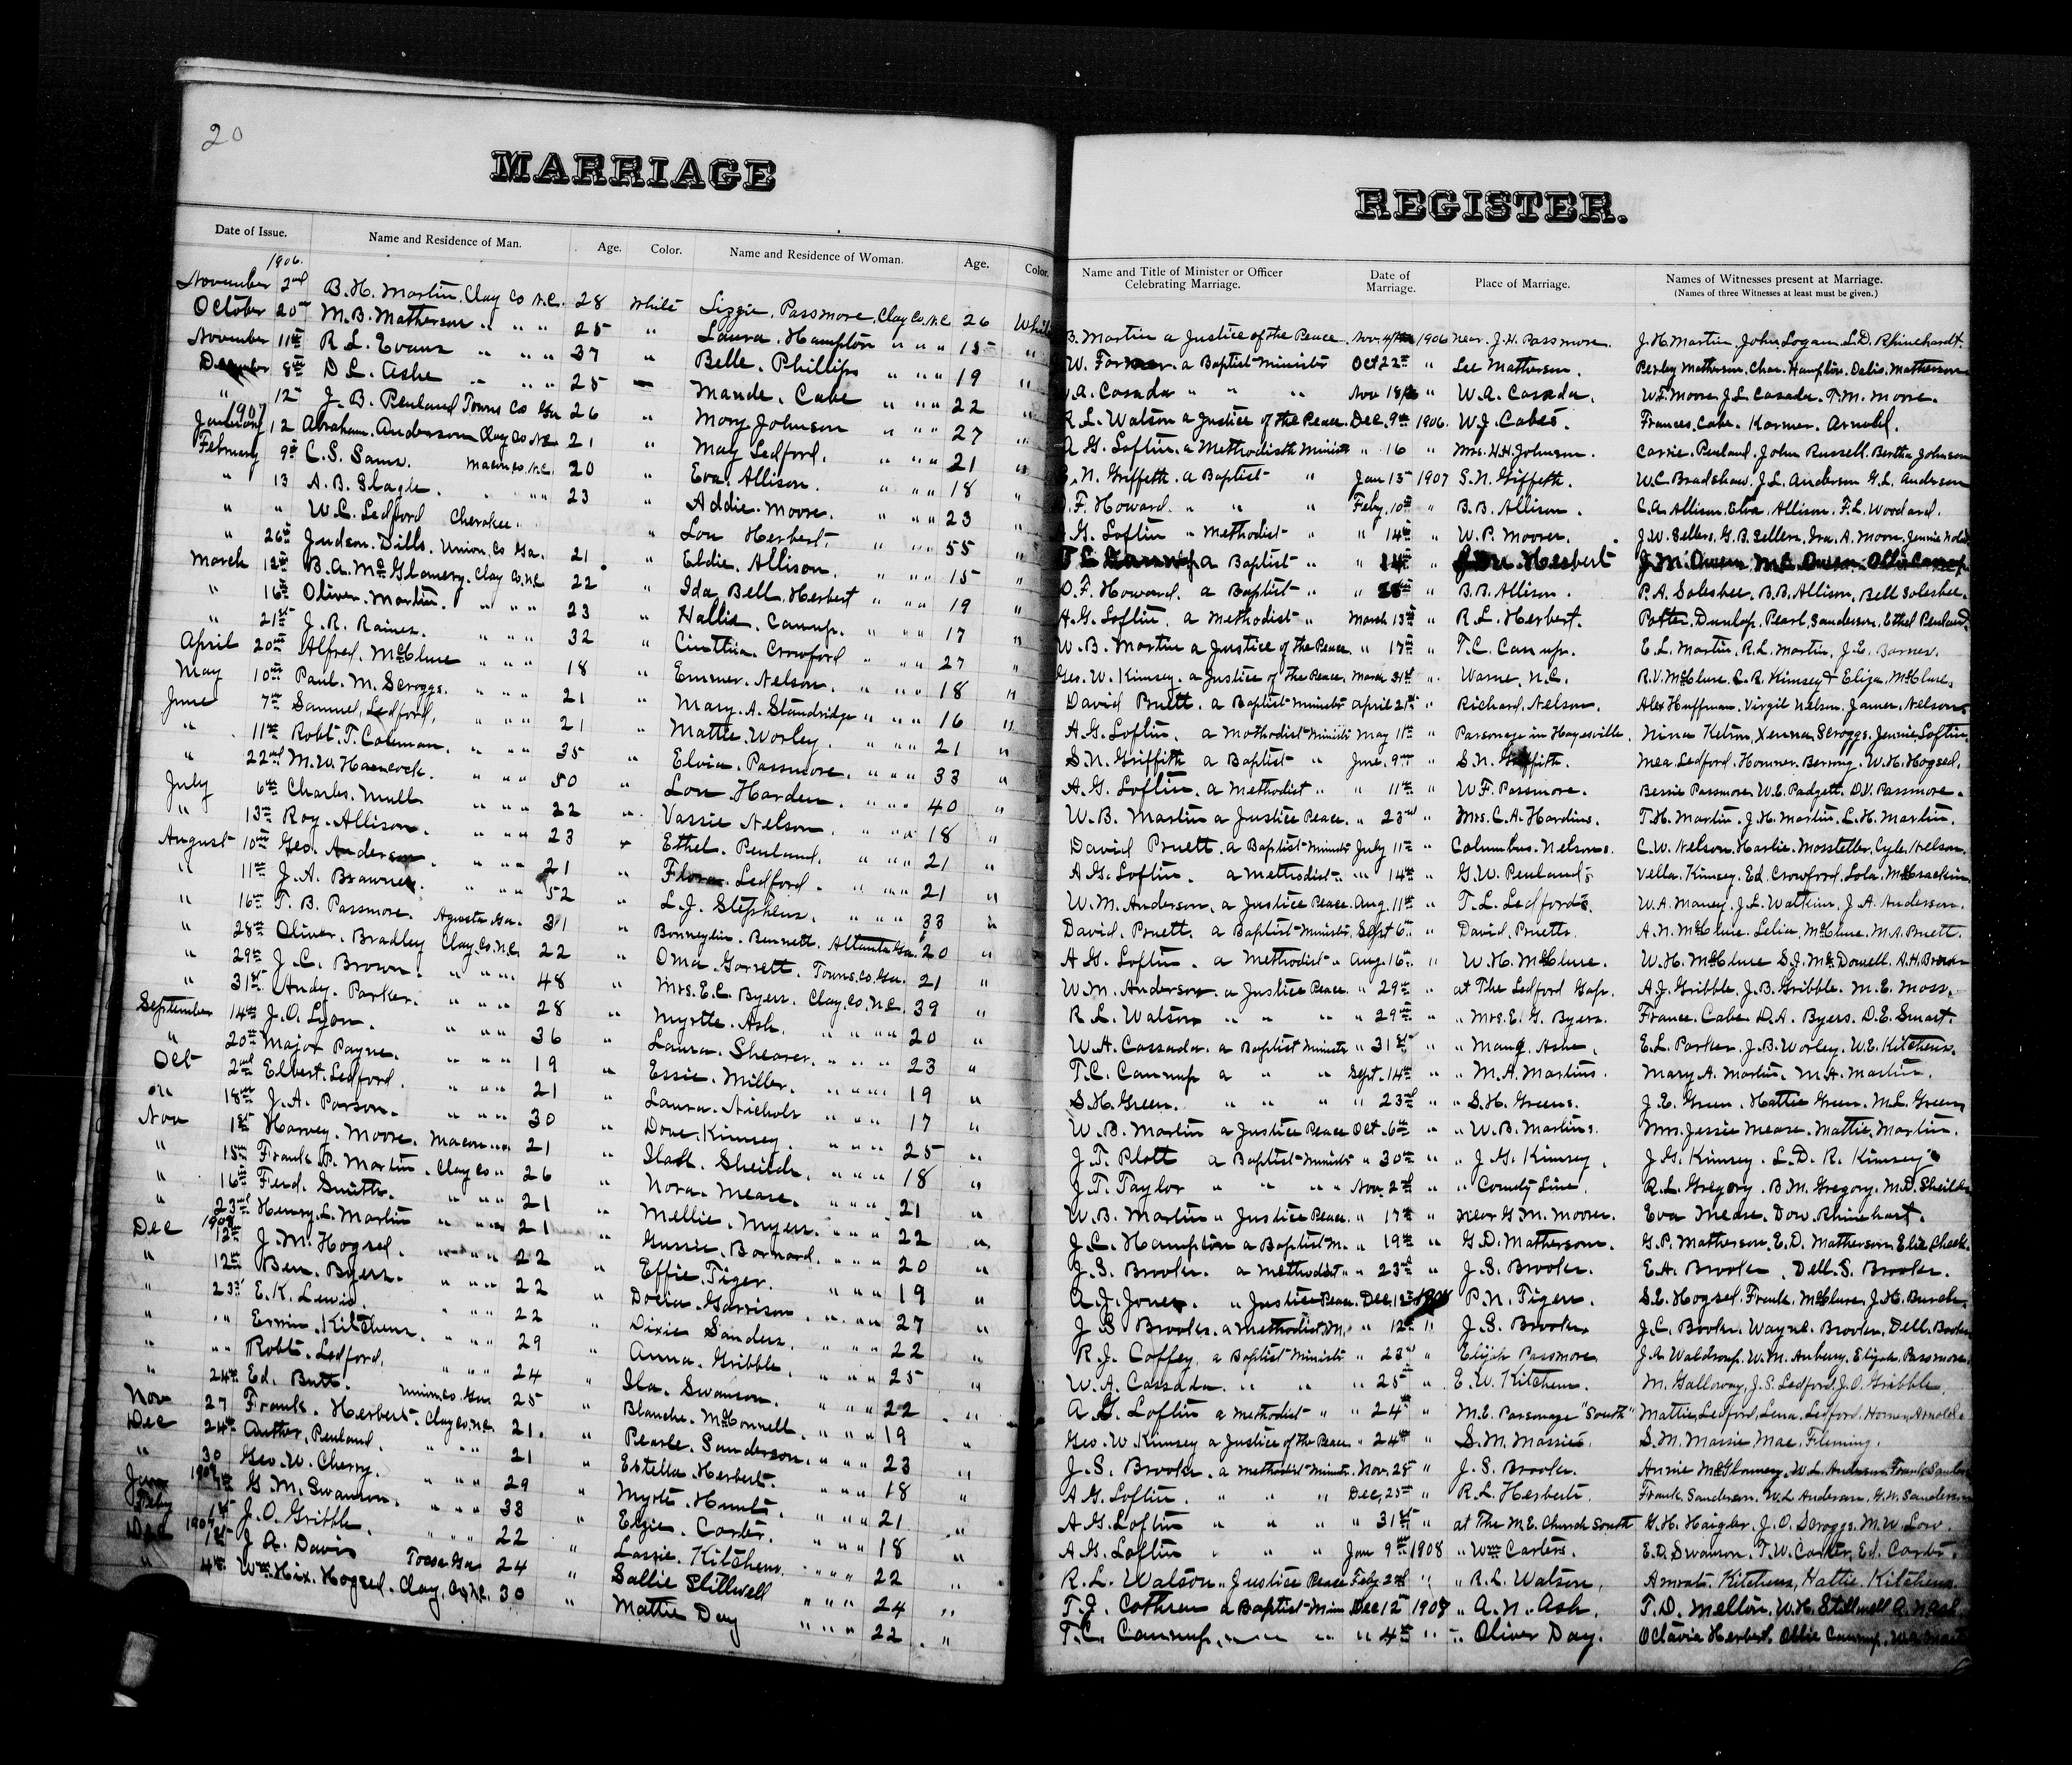 20
MARRIAGE
REGISTER.
Date of Issue. Name and Residence of Man. Age. Color. Name and Residence of Woman. Age. Color.
1906.
November 2nd B. H. Martin, Clay Co N.C. 28 White Lizzie. Passmore, Clay Co, N.C. 26 White
October 20th M. B. Matherson " " " 25 " Laura. Hampton " " " 15 "
November 11th R. L. Evans " " " 37 " Belle. Phillips " " " 19 "
December 8th D. L. Ashe " " " 25 Maude. Cabe " " " 22 "
" 12th J. B. Penland Towns Co Ga 26 " Mary Johnson " " " 27 "
1907
January 12 Abraham. Anderson Clay Co N.C. 21 " May Ledford. " " " 21 "
February 9th C. S. Sams. Macon Co. N.C. 20 " Eva. Allison. " " " 18 "
" 13 A. B. Slagle. " " " 23 " Addie. Moore. " " " 23 "
" " W. C. Ledford Cherokee. " Lou Herbert. " " " 55 "
" 26th Judson. Dills. Union, Co Ga. 21 " Eldie. Allison. " " " 15 "
March 12th B. A. McGlamery. Clay Co, N.C. 22 " Ida, Bell, Herbert " " " 19 "
" 16th Oliver. Martin. " " " 23 " Hallie. Canup. " " " 17 "
" 21st J. R. Raines. " " " 32 " Cinthia. Crawford " " " 27 "
April 20th Alfred. McClure " " " 18 " Emmer. Nelson. " " " 18 "
May 10th Paul. M. Scroggs. " " " 21 Mary. A. Standridge " " " 16 "
June 7th Samuel, Ledford, " " " 21 " Mattie. Worley. " " " 21 "
" 11th Robt. T. Coleman. " " " 35 Elvia. Passmore. " " " 33 "
" 22nd M. W. Hancock. " " " 50 " Lou Harden. " " " 40 "
July 6th Charles. Mull " " " 22 " Vassie Nelson. " " " 18 "
" 13th Roy. Allison. " " " 23 " Ethel. Penland. " " " 21 "
August 10th Geo. Anderson. " " " 21 " Flora. Ledford. " " " 21 "
" 11th J. A. Brawner. " " " 52 " L. J. Stephens. " " " 33 "
" 16th T. B. Passmore. Agusta Ga. 31 " Bonneylin. Bennett. Atlanta Ga. 20 "
" 28th Oliver. Bradley Clay Co, N.C. 22 " Oma. Garrett. Towns. Co. Ga. 21 "
" 29th J. C. Brown. " " " 48 " Mrs. E. C. Byers. Clay, Co, N.C. 39 "
" 31st Andy. Parker. " " " 28 " Myrtle. Ash. " " " 20 "
September 14th J. O. Lyon. " " " 36 " Laura. Shearer. " " " 23 "
" 20th Major Payne. " " " 19 " Essie. Miller. " " " 19 "
Oct 2nd Elbert. Ledford. " " " 21 " Laura. Nichols " " " 17 "
" 18th J. A. Parson. " " " 30 " Dove. Kimsey. " " " 25 "
Nov 1st Harvey. Moore. Macon " " 21 " Sheilds. " " " 18 "
" 15th Frank P. Martin. Clay Co " 26 " Nora. Mease. " " " 21 "
" 16th Ferd. Smith. " " " 21 " Mellie. Myers. " " " 22 "
" 23rd Henry. L. Martin " " " 21 " Gussie. Barnard. " " " 20 "
1908
Dec 12th J. M. Hogsed. " " " 22 " Effie. Tiger. " " " 19 "
" 12th Ben. Byers. " " " 22 " Docia. Garrison. " " " 27 "
" 23rd E. K. Lewis. " " " 22 " Dixie Sanders. " " " 22 "
" " Erwin. Kitchens. " " " 29 " Anna. Gribble. " " " 25 "
" " Robt. Ledford. " " " 24 " Ila. Swanson. " " " 22 "
" 24th Ed. Butt. Union. Co. Ga 25 " Blanche. McConnell. " " " 19 "
Nov 27 Frank. Herbert. Clay Co, N.C. 21. " Pearle. Sanderson. " " " 23 "
Dec 24th Auther. Penland. " " " 21 " Estella Herbert. " " " 18 "
" 30 Geo. W. Cherry. " " " 29 " Myrtle. Hunt. " " " 21 "
Jan 1908 G. M. Swanson. " " " 33 " Elzie. Carter. " " " 18 "
Feby 1st J. O. Gribble. " " " 22 " Lassie. Kitchens. " " " 22 "
Dec 1st J. A. Davis Tocoa Ga 24 " Sallie Stillwell " " " 24 "
" 4th Wm. Hix. Hogsed. Clay, Co, N.C. 30 " Mattie Day " " " 22 "
Name and Title of Minister or Officer Celebrating Marriage. Date of Marriage. Place of Marriage. Names of Witnesses present at Marriage.
(Names of three Witnesses at least must be given.)
B. Martin a Justice of the Peace. Nov 1906 near. J. H. Passmore. J. H. Martin. John Logan. L. D. Rhinehardt.
W. Farmer. a Baptist Minister Oct 22nd " Lee Matherson. Perley Matherson. Chas. Hampton. Delis. Matherson
A. Casada " " " Nov 18th " W. A. Casada. W. T. Moore, J. L. Casada. T. M. Moore.
R. L. Watson a Justice of the Peace. Dec. 9th 1906. W. J. Cabes. Frances. Cabe. Arnold.
A G. Loftin. a Methodist Minister " 16 " Mrs. H. H. Johnson. Carrie. Penland. John Russell. Bertha Johnson
S. N. Griffeth. a Baptist " Jan 13th 1907 S. N. Griffeth. W. C. Bradshaw, J. L. Anderson G. L. Anderson
O. F. Howard. " " " Feby. 10th " B. B. Allison. C. A. Allison. Elva. Allison. F. L. Woodard.
A. G. Loftin " Methodist " " 14th " W. P. Moores. J. W. Sellers. G. B. Sellers. Ira. A. Moore.
a Baptist " " 14th " Lou Herbert J. M. Owens, M. C. Owens. Ollie Canup.
O. F. Howard. a Baptist " " 28th " B. B. Allison. P. A. Solesbee. B. B. Allison. Bell Solesbee.
A. G. Loftin. a Methodist " March 13th " R. L. Herbert. Potter. Dunlap. Pearl. Sanderson. Ethel Penland.
W. B. Martin a Justice of the Peace. " 17th " T. C. Canup. E. L. Martin. R. L. Martin. J. E. Barnes.
Geo. W. Kimsey. a Justice of the Peace, March 21st " Warne, N.C. R. V. McClure. C. R. Kimsey & Eliza. McClure.
David Pruett. a Baptist Minister April 21st " Richard. Nelson. Alex Huffman. Virgil Nelson. James. Nelson.
A. G. Loftin. a Methodist Minister May 11th " Parsonage in Hayesville. Nina Ketron. Xenna. Scroggs. Jennie. Loftin.
S. N. Griffith a Baptist " June. 9th " S. N. Griffith. Mea. Ledford. W. H. Hogsed.
A. G. Loftin. a Methodist " " 11th " W. F. Passmore. Bessie Passmore. W. E. Padgett. D. V. Passmore.
W. B. Martin a Justice Peace. " 23rd " Mrs. C. A. Hardins. T. H. Martin. J. H. Martin. L. H. Martin.
David Pruett. a Baptist Minister July 11th " Columbus. Nelsons. C. W. Nelson. Harlie. Mosteller. Cyle. Nelson.
A G. Loftin. a Methodist " " 14th " G. W. Penland's Vella. Kimsey. Ed. Crawford. Lola. McCrackin
W. M. Anderson. a Justice Peace. Aug. 11th " T. L. Ledford's. W. A. Maney. J. L. Watkins. J. A. Anderson.
David. Pruett. a Baptist Minister. Sept 6th " David. Pruetts. A. N. McClure. Lelia. McClure. M. A. Pruett.
A G. Loftin. a Methodist " Aug. 16th " W. H. McClure. W. H. McClure S. J. McDowell. A. H. Brown
W. M. Anderson. a Justice Peace. " 29th " at The Ledford Gap. A. J. Gribble. J. B. Gribble. M. E. Moss.
R. L. Watson " " " " 29th " " Mrs. E. G. Byers. France. Cabe. D. A. Byers. D. E. Smart.
W. A. Cassada. a Baptist Minister " 31st " " Ashe. E. L. Parker. J. B. Worley. W. E. Kitchens.
T. C. Cannup a " " Sept. 14th " " M. A. Martins. Mary A. Martin. M. A. Martin.
S. H. Green. " " " " 23rd " " S. H. Greens. J. E. Green. Hattie Green. M. L. Green
W. B. Martin a Justice Peace Oct. 6th " " W. B. Martins. Mrs. Jessie Mease. Mattie. Martin.
J. T. Platt a Baptist Minister " 30th " " J. G. Kimsey. J. G. Kimsey. L. D. R. Kimsey
J. T. Taylor " " " Nov. 2nd " " County Line. R. L. Gregory. B. M. Gregory. M. D. Sheilds
W. B. Martin " Justice Peace. " 17th " near G. M. Moores. Eva Mease. Dow. Rhinehart.
J. C. Hampton a Baptist M. " 19th " G. D. Matherson. G. P. Matherson. E. D. Matherson. Elie Cheek.
J. S. Brooks. a Methodist " " 23rd " J. S. Brooks. E. A. Brooks. Dell. S. Brooks.
A. J. Jones. " Justice Peace. Dec. 12th P. N. Tigers. S. E. Hogsed. Frank. McClure. J. H. Burch.
J S Brooks. a Methodist M. " 12th " J. S. Brooks J. C. Brooks. Wayne. Brooks. Dell. Brooks
R. J. Coffey. a Baptist Minister " 23rd " Elijah Passmore J. A. Waldroup. W. M. Anbury. Elijah. Passmore.
W. A. Cassada. " " " 25th " E. W. Kitchens. M. Galloway. J. S. Ledford. J. O. Gribble.
A G. Loftin a Methodist " " 24th " M. E. Parsonage "South" Mattie. Ledford. Lena. Ledford. Homer. Arnold.
Geo. W. Kimsey a Justice of the Peace " 24th " S. M. Massies. S. M. Massie Mae. Fleming.
J. S. Brooks. a Methodist Minister. Nov. 28th " J. S. Brooks. Annie McGlamery. W. L. Anderson. Frank. Sanderson
A G. Loftin. " " " Dec. 25th " R. L. Herberts. Frank. Sanderson. W. L. Anderson. G. H. Sanderson
A G. Loftin " " " " 31st " at The M. E. Church South G. H. Haigler. J. O. Scroggs. M. W. Low.
A. G. Loftin " " " Jan 9th 1908 " Wm Carters. E. D. Swanson. T. W. Carter, Ed. Carter.
R. L. Watson. " Justice Peace Feby. 2nd " " R. L. Watson. Kitchens, Hattie. Kitchens.
T. J. Cothren a Baptist Min Dec 1st 1908 " A. N. Ash. T. D. Mellon. W. H. Stillwell A. N. Ash.
T. C. Cannup. " " " " 4th " " Oliver Day. Octavia Herbert. Ollie Cannup.